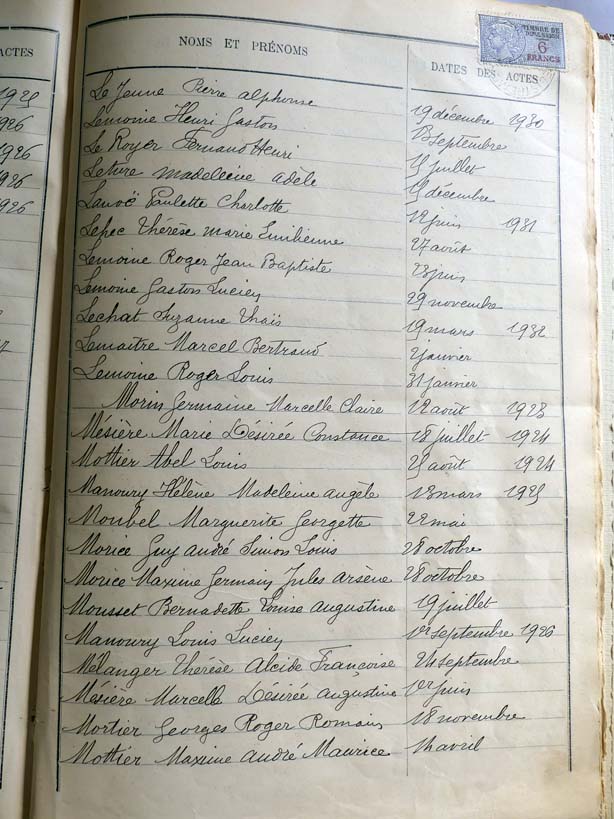 ACTES
1925
1926
1926
1926
1926
NOMS ET PRÉNOMS
DATES DES ACTES
TIMBRE DE DIMENSION
6 FRANCS
Le Jeune Pierre alphonse 19 décembre 1930
Lemoine Henri Gaston 13 septembre
Le Royer Fernand Henri 15 juillet
madeleine adèle 15 décembre
Lanoë Paulette Charlotte 12 juin 1931
Lepec Thérèse marie Emilienne 27 août
Lemoine Roger Jean Baptiste 28 juin
Lemoine Gaston Lucien 29 novembre
Lechat Suzanne Thaïs 19 mars 1932
Lemaitre Marcel Bertrand 2 janvier
Lemoine Roger Louis 31 janvier
Morin Germaine Marcelle Claire 12 août 1923
Mésière Marie Désirée Constance 18 juillet 1924
Mottier Abel Louis 25 août 1924
Manoury Hélène Madeleine angèle 13 mars 1925
Moubel Marguerite Georgette 22 mai
Morice Guy andré Simon Louis 28 octobre
Morice Maxime Germain Jules arsène 28 octobre
Mousset Bernadette Louise augustine 19 juillet
Manoury Louis Lucien 1er septembre 1926
Mélanger Thérèse Alcide Françoise 24 septembre
Mésière Marcelle Désirée augustine 1er juin
Mortier Georges Roger Romain 18 novembre
Mottier Maxime andré Maurice 14 avril